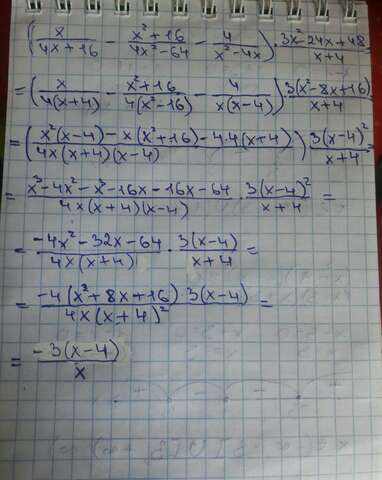 (x/(4x+16) - (x²+16)/(4x²-64) - 4/(x²-4x)) · (3x²-24x+48)/(x+4)
= (x/(4(x+4)) - (x²+16)/(4(x²-16)) - 4/(x(x-4))) · 3(x²-8x+16)/(x+4)
= ((x²(x-4) - x(x²+16) - 4·4(x+4))/(4x(x+4)(x-4))) · 3(x-4)²/(x+4) =
= (x³-4x²-x³-16x-16x-64)/(4x(x+4)(x-4)) · 3(x-4)²/(x+4) =
= (-4x²-32x-64)/(4x(x+4)) · 3(x-4)/(x+4) =
= (-4(x²+8x+16) 3(x-4))/(4x(x+4)²) =
= -3(x-4)/x